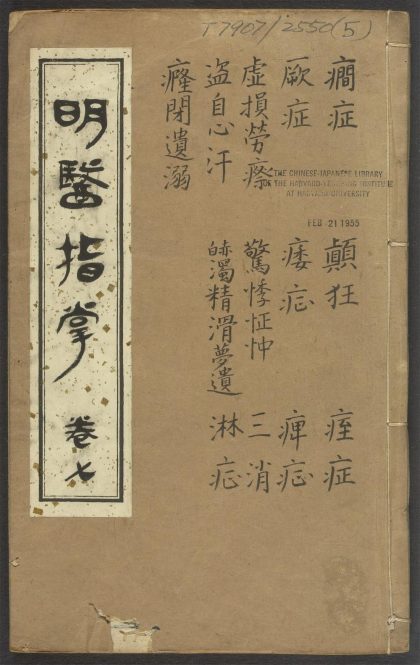 T7907/2550(5)
癇症 顛狂 痓症
厥症 痿症 痺症
虛損勞瘵 驚悸怔忡 三消
盗自心汗 赤白濁精滑夢遺 淋症
癃閉遺溺
明醫指掌 卷七
THE CHINESE-JAPANESE LIBRARY
OF THE HARVARD-YENCHING INSTITUTE
AT HARVARD UNIVERSITY
FEB 21 1955